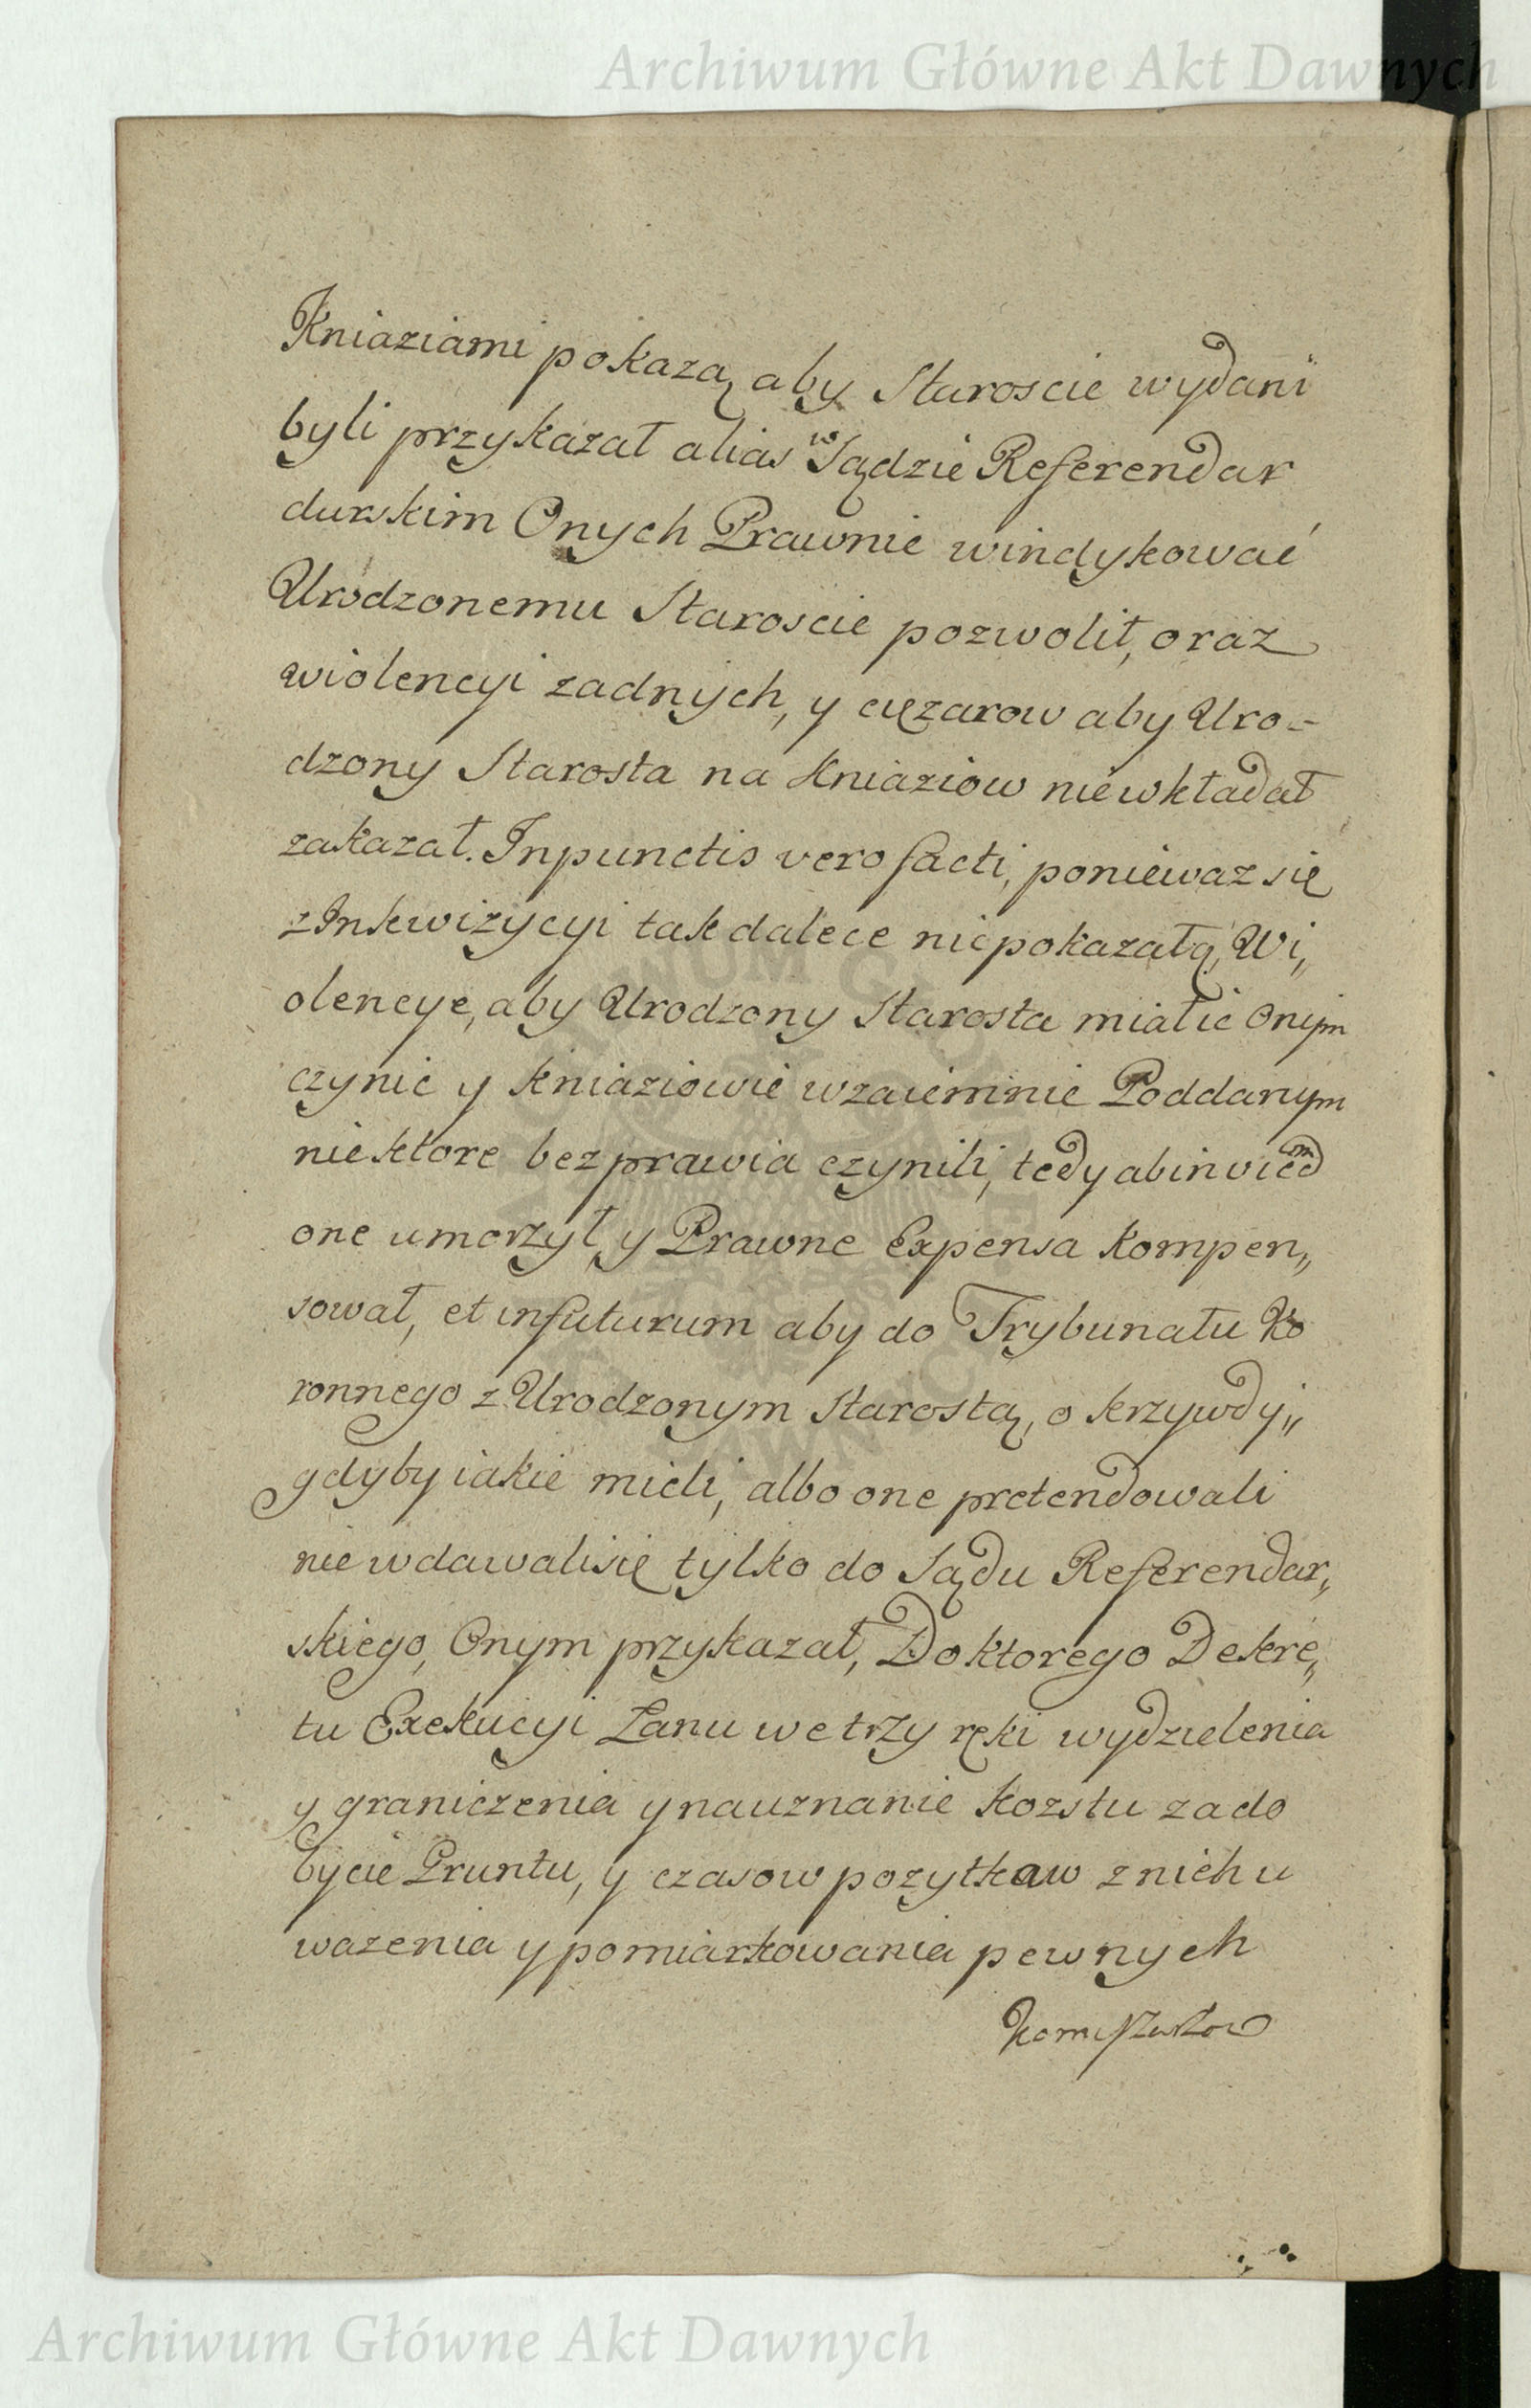 Archiwum Główne Akt Dawnych
Kniaziami pokazą aby Staroscie wydani
byli przykazał alias w Sądzie Referendar
durskim Onych Prawnie windykować
Urodzonemu Staroscie pozwolił, oraz
wiolencyi zadnych, y cięzarow aby Uro-
dzony Starosta na Kniaziow niewkładał
zakazał. Inpunctis vero facti, poniewaz się
z Inkwizycyi tak dalece niepokazałą, Wi„
olencye, aby Urodzony Starosta miał ie Onym
czynic y Kniaziowie wzaiemnie Poddanym
niektore bezprawia czynili, tedy abinvicẽ
one umorzył, y Prawne Expensa kompen„
sował, et infuturum aby do Trybunału Ko
ronnego z Urodzonym Starostą, o krzywdy„
gdyby iakie mieli, albo one pretendowali
nie wdawali się tylko do Sądu Referendar„
skiego, Onym przykazał, Do ktorego Dekre„
tu Exekucyi Lanu we trzy ręki wydzielenia
y graniczenia y nauznanie kozstu za do
bycie Gruntu, y czasow pozytkaw z nich u
wazenia y pomiarkowania pewnych
Komisarzow
Archiwum Główne Akt Dawnych